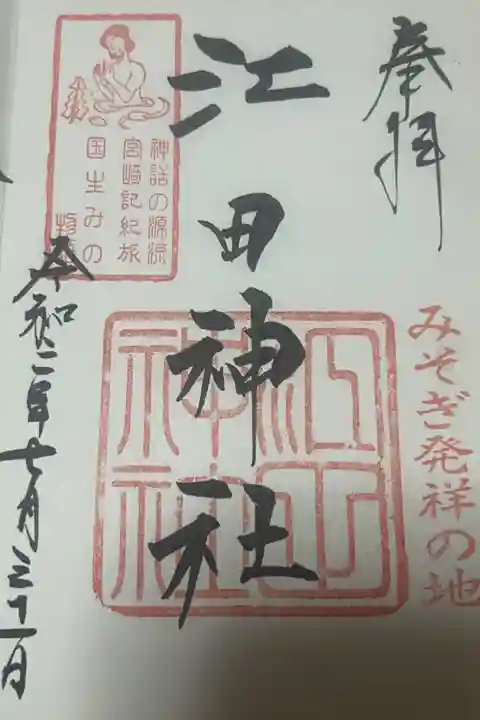 奉拝
みそぎ発祥の地
江田神社
江田神社
神話の源流
宮崎記紀旅
国生みの
令和二年七月三十一日